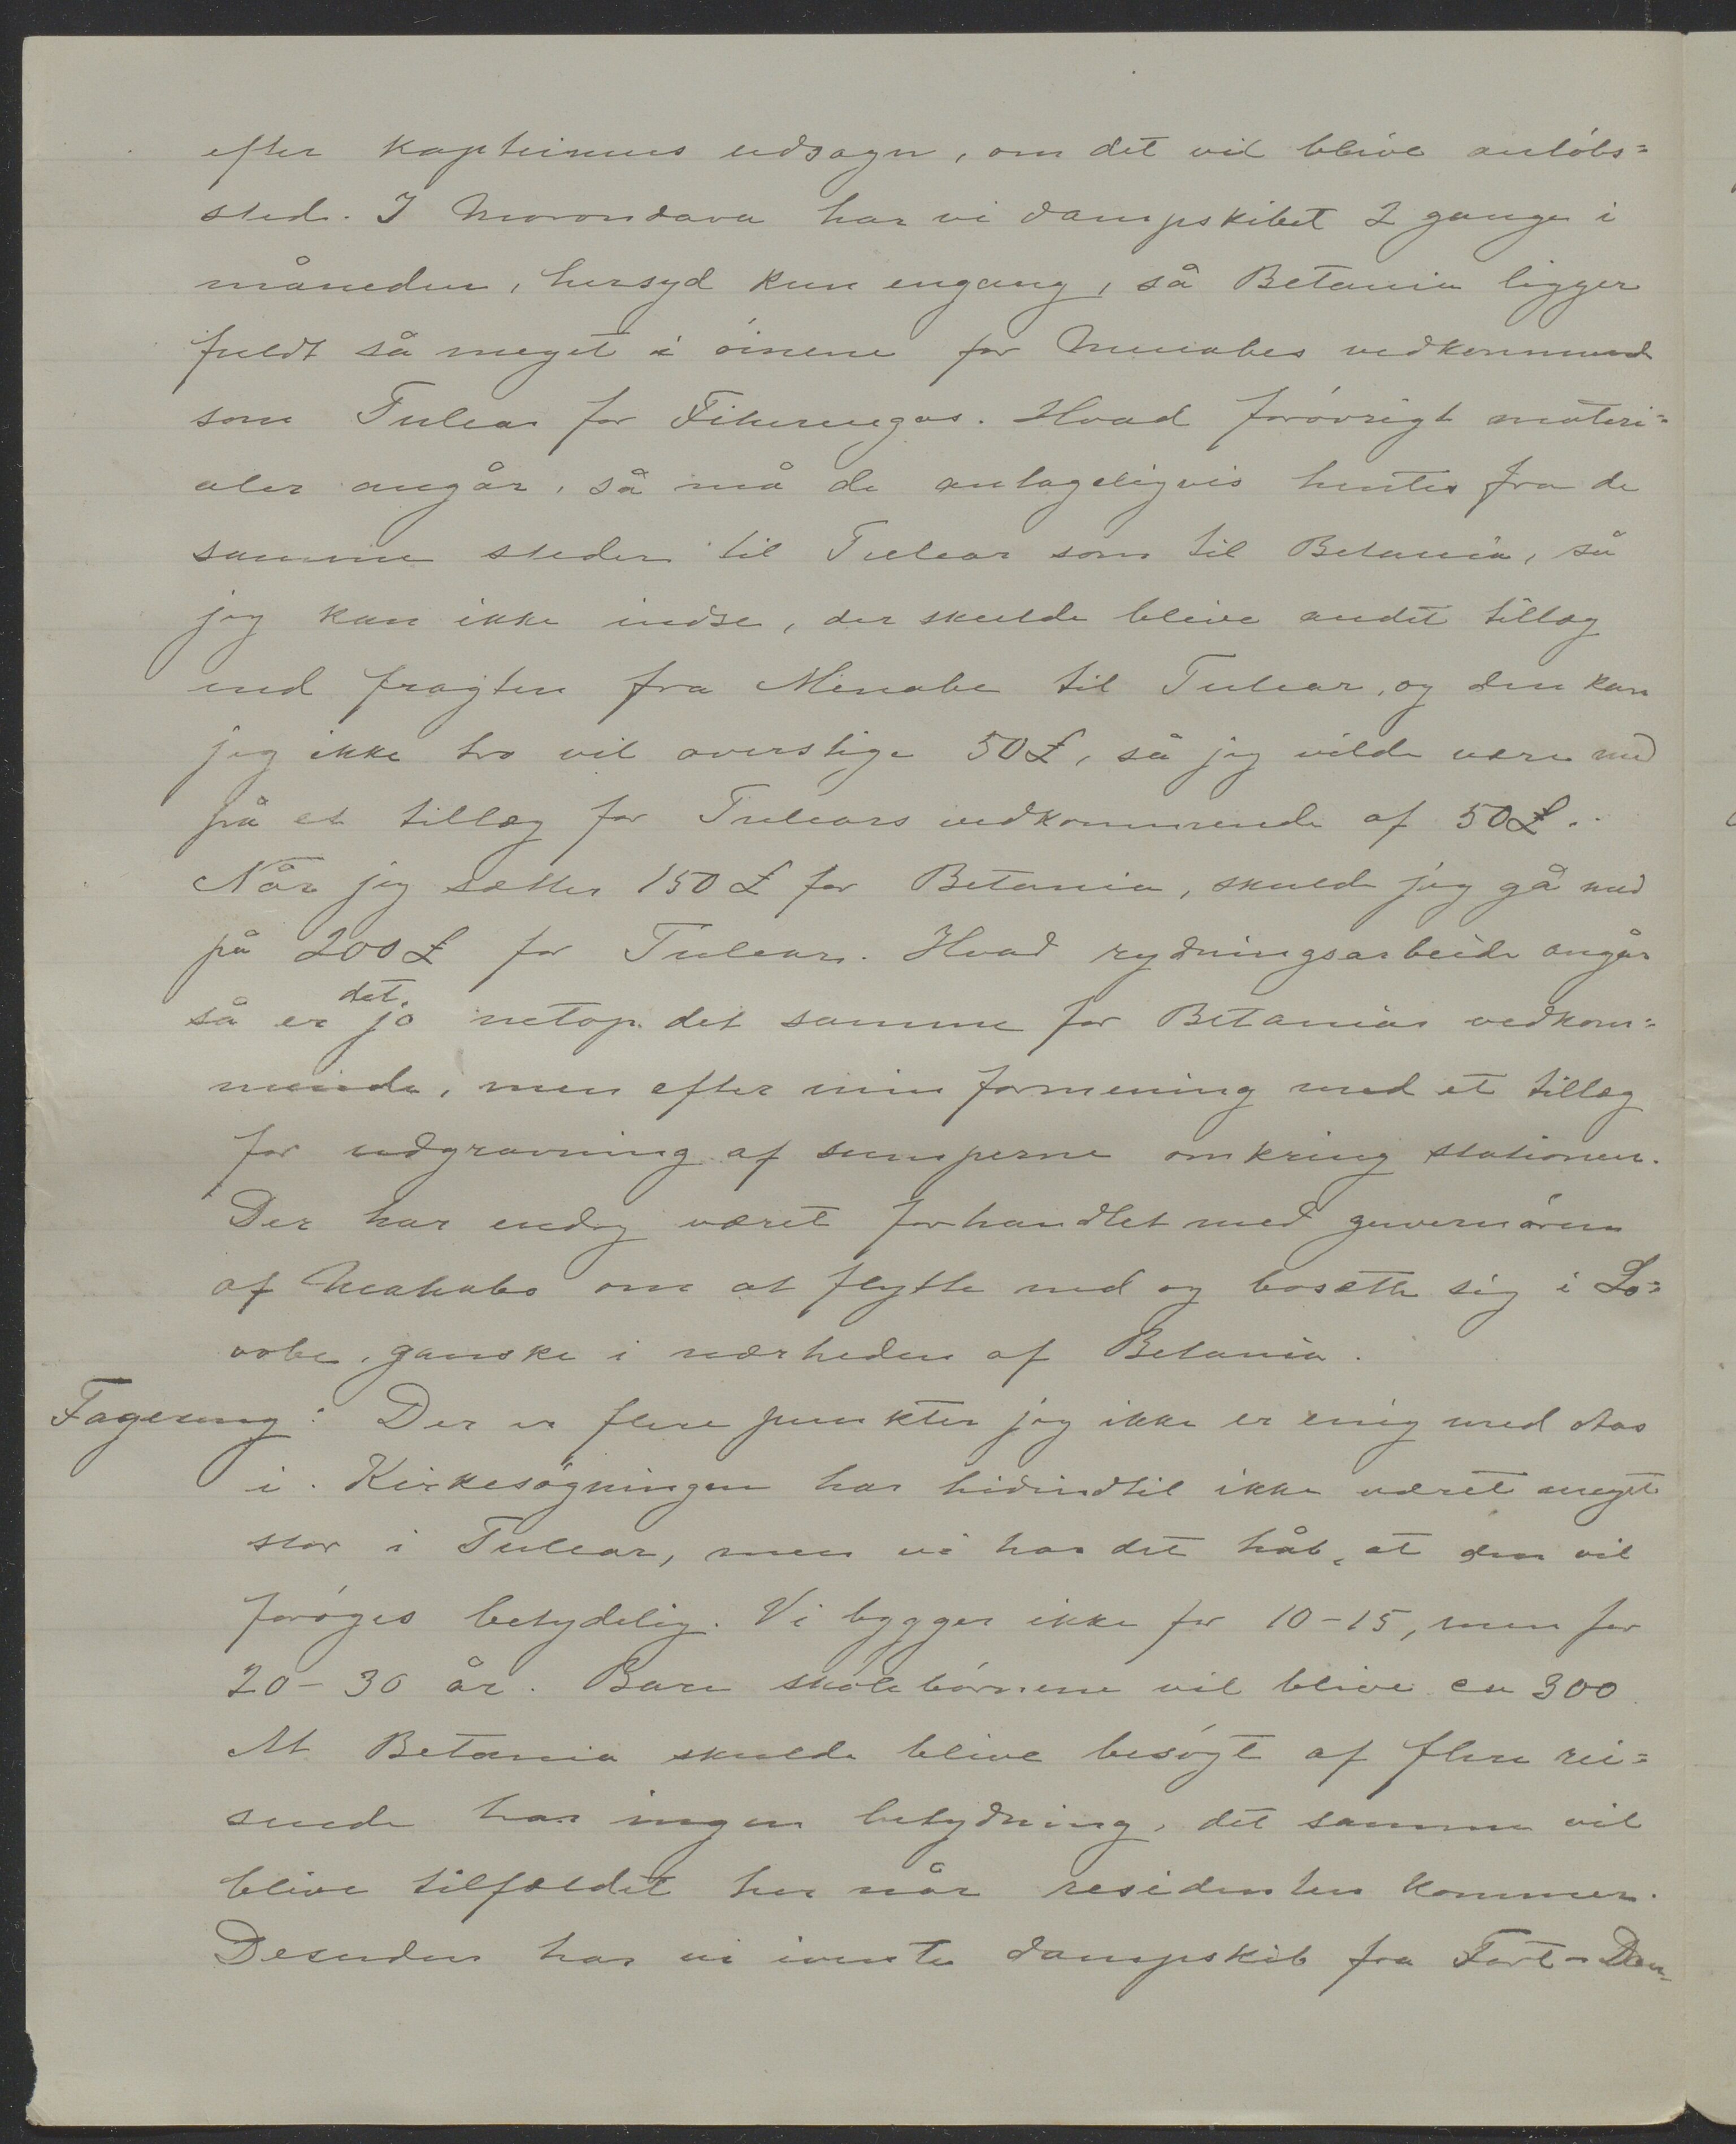 efter kapteinens udsagn, om det vil blive anløbs=
sted. I Morondava har vi dampskibet 2 gange i
måneden, hersyd kun engang, så Betania ligger
fuldt så meget i óinene for Menabes vedkommend
som Tulear for Fiherengas. Hvad forøvrigt materi=
aler angår, så må de antageligvis hentes fra de
samme steder til Tulear som til Betania, så
jeg kan ikke indse, der skulde blive andet tillæg
end fragten fra Menabe til Tulear, og den kan
jeg ikke tro vil overstige 50£, så jeg vilde være med
på et tillæg for Tulears vedkommende af 50£.
Når jeg sætter 150£ for Betania, skulde jeg gå med
på 200£ for Tulear. Hvad rydningsarbeide angår
så er det jo netop det samme for Betanias vedkom=
mende, men efter min formening med et tillæg
for udgravning af sumperne omkring stationen.
Der har endog været forhandlet med guvernøren
af Mahabo om at flytte ned og bosætte sig i Lo=
vobe, ganske i nærheden af Betania.
Fagereng: Der er flere punkter jeg ikke er enig med Aas
i. Kirkesøgningen har hidindtil ikke været meget
stor i Tulear, men vi har det håb, at den vil
forøges betydelig. Vi bygger ikke for 10-15, men for
20-30 år. Bare skolebørnene vil blive ca 300
At Betania skulde blive besøgt af flere rei=
sende har ingen betydning, det samme vil
blive tilfældet her når residenten kommer.
Desuden har vi ivente dampskib fra Fort-Dau-